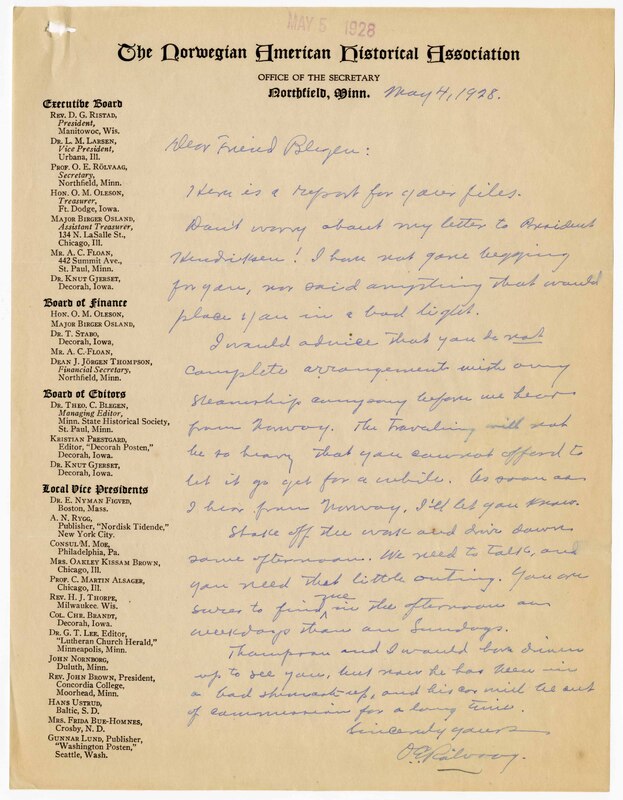 MAY 5 1928
The Norwegian American Historical Association
OFFICE OF THE SECRETARY
Northfield, Minn. May 4, 1928.
Executive Board
REV. D. G. RISTAD,
President,
Manitowoc, Wis.
DR. L. M. LARSEN,
Vice President,
Urbana, Ill.
PROF. O. E. RÖLVAAG,
Secretary,
Northfield, Minn.
HON. O. M. OLESON,
Treasurer,
Ft. Dodge, Iowa.
MAJOR BIRGER OSLAND,
Assistant Treasurer,
134 N. LaSalle St.,
Chicago, Ill.
MR. A. C. FLOAN,
442 Summit Ave.,
St. Paul, Minn.
DR. KNUT GJERSET,
Decorah, Iowa.
Board of Finance
HON. O. M. OLESON,
MAJOR BIRGER OSLAND,
DR. T. STABO,
Decorah, Iowa,
MR. A. C. FLOAN,
DEAN J. JÖRGEN THOMPSON,
Financial Secretary,
Northfield, Minn.
Board of Editors
DR. THEO. C. BLEGEN,
Managing Editor,
Minn. State Historical Society,
St. Paul, Minn.
KRISTIAN PRESTGARD,
Editor, "Decorah Posten,"
Decorah, Iowa.
DR. KNUT GJERSET,
Decorah, Iowa.
Local Vice Presidents
DR. E. NYMAN FIGVED,
Boston, Mass.
A. N. RYGG,
Publisher, "Nordisk Tidende,"
New York City.
CONSUL M. MOE,
Philadelphia, Pa.
MRS. OAKLEY KISSAM BROWN,
Chicago, Ill.
PROF. C. MARTIN ALSAGER,
Chicago, Ill.
REV. H. J. THORPE,
Milwaukee. Wis.
COL. CHR. BRANDT,
Decorah, Iowa.
DR. G. T. LEE, Editor,
"Lutheran Church Herald,"
Minneapolis, Minn.
JOHN NORNBORG,
Duluth, Minn.
REV. JOHN BROWN, President,
Concordia College,
Moorhead, Minn.
HANS USTRUD,
Baltic, S. D.
MRS. FRIDA BUE-HOMNES,
Crosby, N. D.
GUNNAR LUND, Publisher,
"Washington Posten,"
Seattle, Wash.
Dear Friend Blegen:
Here is a report for your files.
Don't worry about my letter to President
Hendriksen! I have not gone begging
for you, nor said anything that would
place you in a bad light.
I would advice that you do not
complete arrangements with any
steamship company before we hear
from Norway. The traveling will not
be so heavy that you cannot afford to
let it go yet for a while. As soon as
I hear from Norway, I'll let you know.
Shake off the work and drive down
some afternoon. We need to talk, and
you need that little outing. You are
surer to find me in the afternoon on
weekdays than on Sundays.
Thompson and I would have driven
up to see you, but now he has been in
a bad smash-up, and his car will be out
of commission for a long time.
Sincerely yours
O. E. Rölvaag.